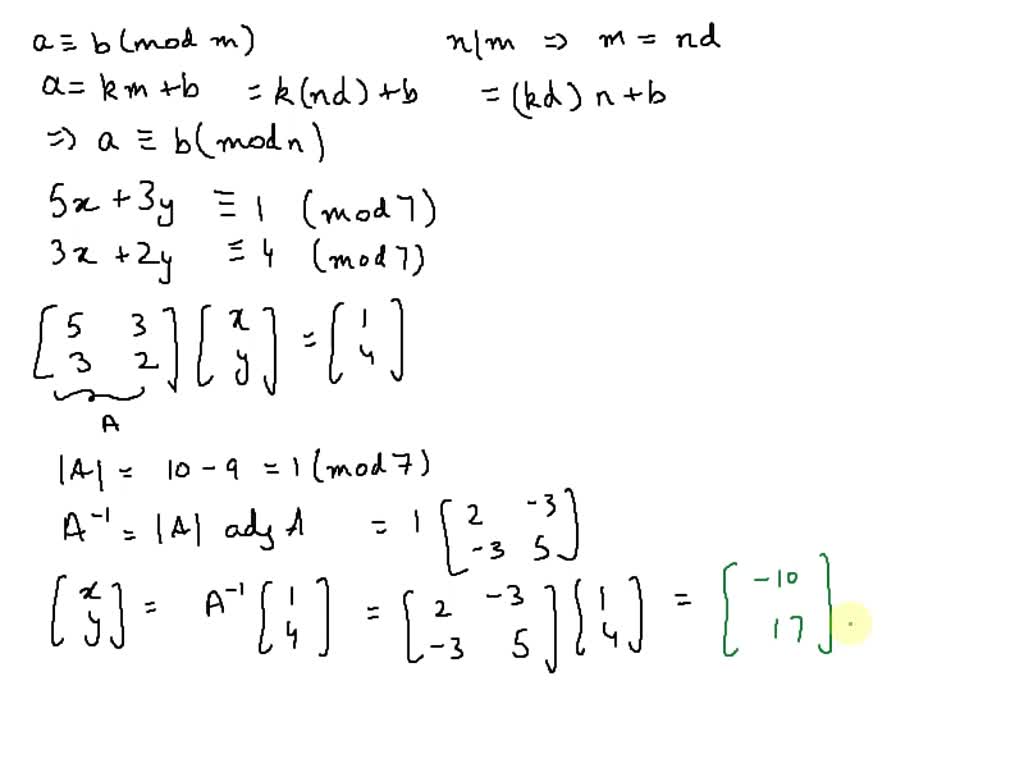 a ≡ b (mod m) n|m ⇒ m = nd
a = km + b = k(nd) + b = (kd) n + b
⇒ a ≡ b (mod n)
5x + 3y ≡ 1 (mod 7)
3x + 2y ≡ 4 (mod 7)
[5 3; 3 2] [x; y] = [1; 4]
A
|A| = 10 - 9 = 1 (mod 7)
A⁻¹ = |A| adj A = 1 [2 -3; -3 5]
[x; y] = A⁻¹ [1; 4] = [2 -3; -3 5] [1; 4] = [-10; 17]